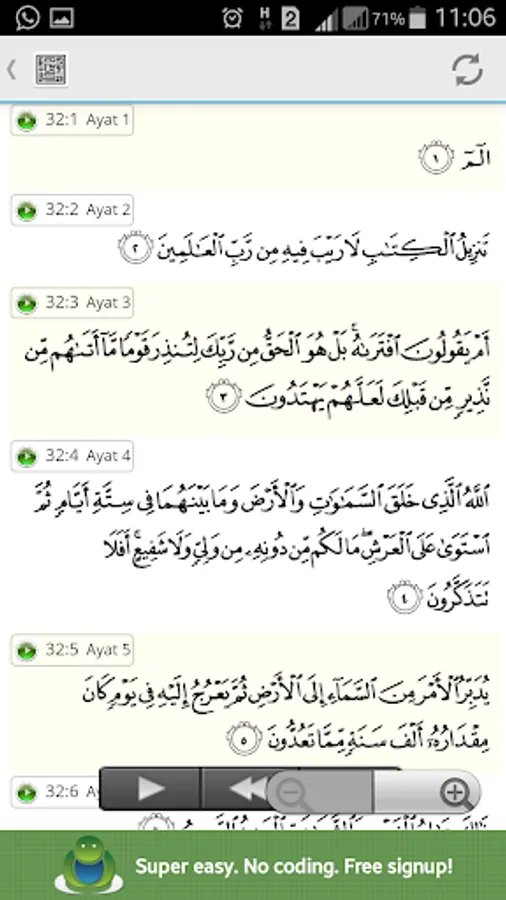 H 2 71% 11:06
32:1 Ayat 1
الٓمٓ ١
32:2 Ayat 2
تَنزِيلُ ٱلْكِتَٰبِ لَا رَيْبَ فِيهِ مِن رَّبِّ ٱلْعَٰلَمِينَ ٢
32:3 Ayat 3
أَمْ يَقُولُونَ ٱفْتَرَىٰهُ ۚ بَلْ هُوَ ٱلْحَقُّ مِن رَّبِّكَ لِتُنذِرَ قَوْمًا مَّآ أَتَىٰهُم مِّن
نَّذِيرٍ مِّن قَبْلِكَ لَعَلَّهُمْ يَهْتَدُونَ ٣
32:4 Ayat 4
ٱللَّهُ ٱلَّذِى خَلَقَ ٱلسَّمَٰوَٰتِ وَٱلْأَرْضَ وَمَا بَيْنَهُمَا فِى سِتَّةِ أَيَّامٍ ثُمَّ
ٱسْتَوَىٰ عَلَى ٱلْعَرْشِ ۖ مَا لَكُم مِّن دُونِهِۦ مِن وَلِىٍّ وَلَا شَفِيعٍ ۚ أَفَلَا
تَتَذَكَّرُونَ ٤
32:5 Ayat 5
يُدَبِّرُ ٱلْأَمْرَ مِنَ ٱلسَّمَآءِ إِلَى ٱلْأَرْضِ ثُمَّ يَعْرُجُ إِلَيْهِ فِى يَوْمٍ كَانَ
مِقْدَارُهُۥٓ أَلْفَ سَنَةٍ مِّمَّا تَعُدُّونَ ٥
32:6
Super easy. No coding. Free signup!